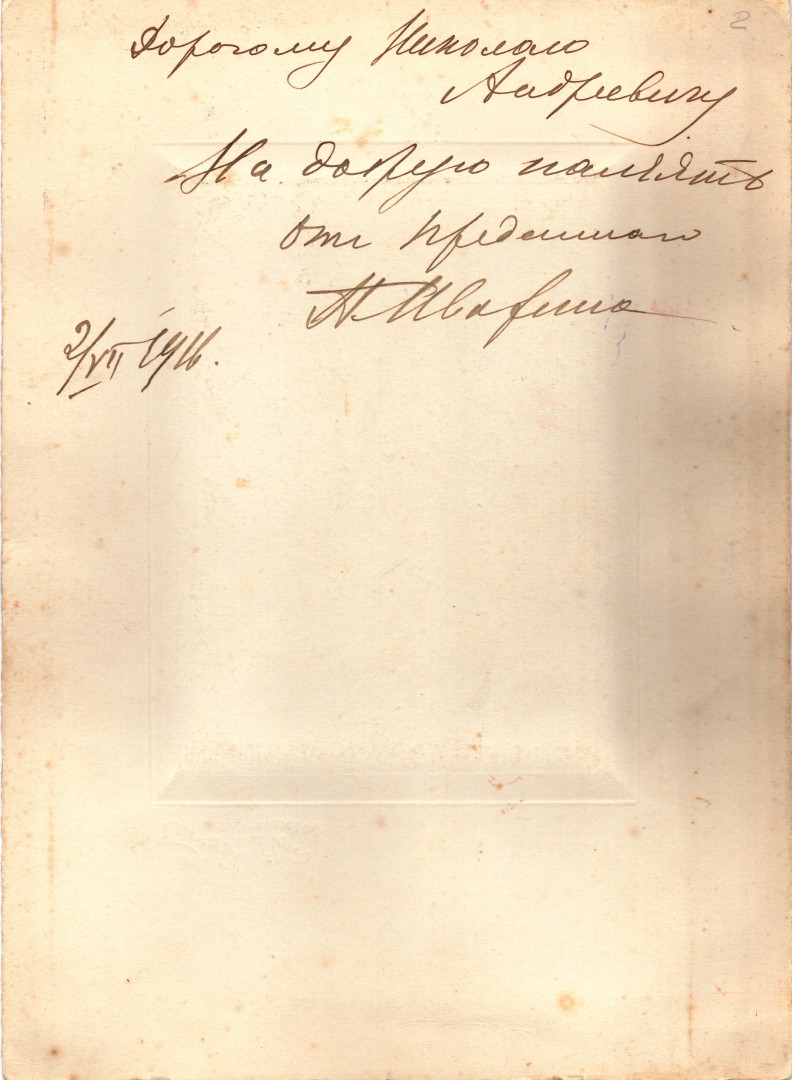 2
Дорогому Николаю
Андреевичу
На добрую память
отъ преданнаго
2/VII 1916.